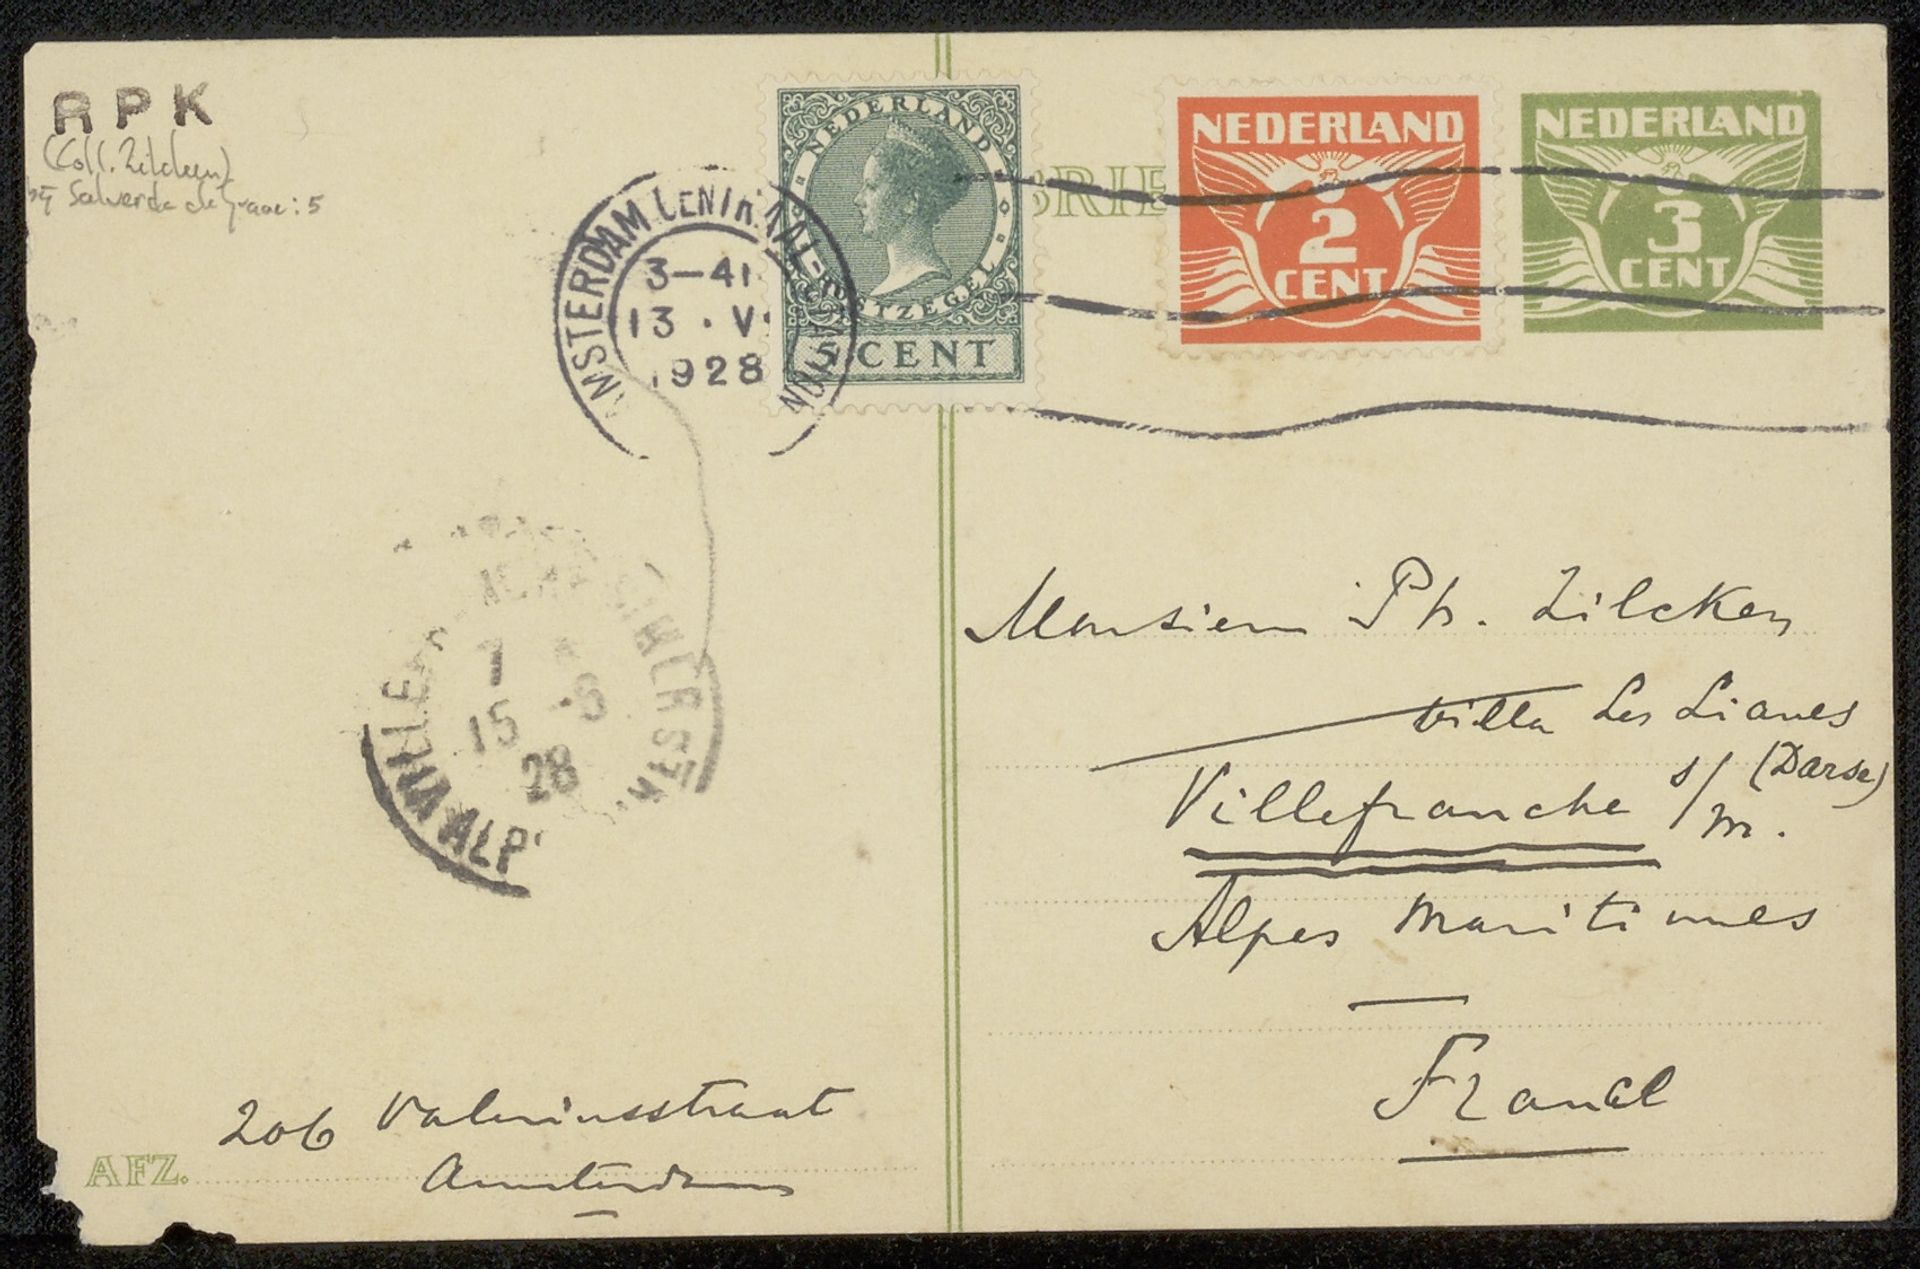 RPK
(Coll. Zilcken)
bij Salverda de Grave: 5
AMSTERDAM CENTRAAL-STATION
3-4
13 · V
1928
NEDERLAND
POSTZEGEL
5 CENT
BRIE
NEDERLAND
2
CENT
NEDERLAND
3
CENT
7
15 -6
28
ALP MMES
Monsieur Ph. Zilcken
Villa Les Lianes
(Darse)
Villefranche s/m.
Alpes Maritimes
France
206 Valeriusstraat
AFZ. Amsterdam